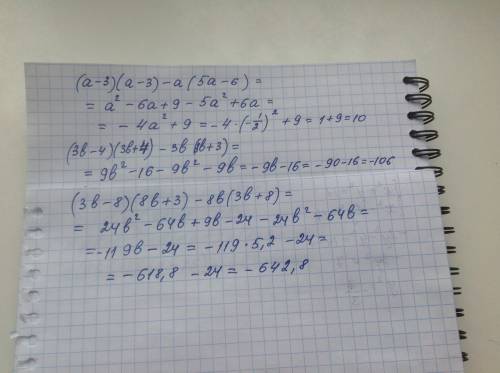 (a-3)(a-3)-a(5a-6)=
= a²-6a+9-5a²+6a=
= -4a²+9=-4·(-1/3)²+9=1+9=10
(3b-4)(3b+4)-3b(3b+3)=
= 9b²-16-9b²-9b=-9b-16=-90-16=-106
(3b-8)(8b+3)-8b(3b+8)=
= 24b²-64b+9b-24-24b²-64b=
=-119b-24=-119·5,2-24=
= -618,8 -24=-642,8